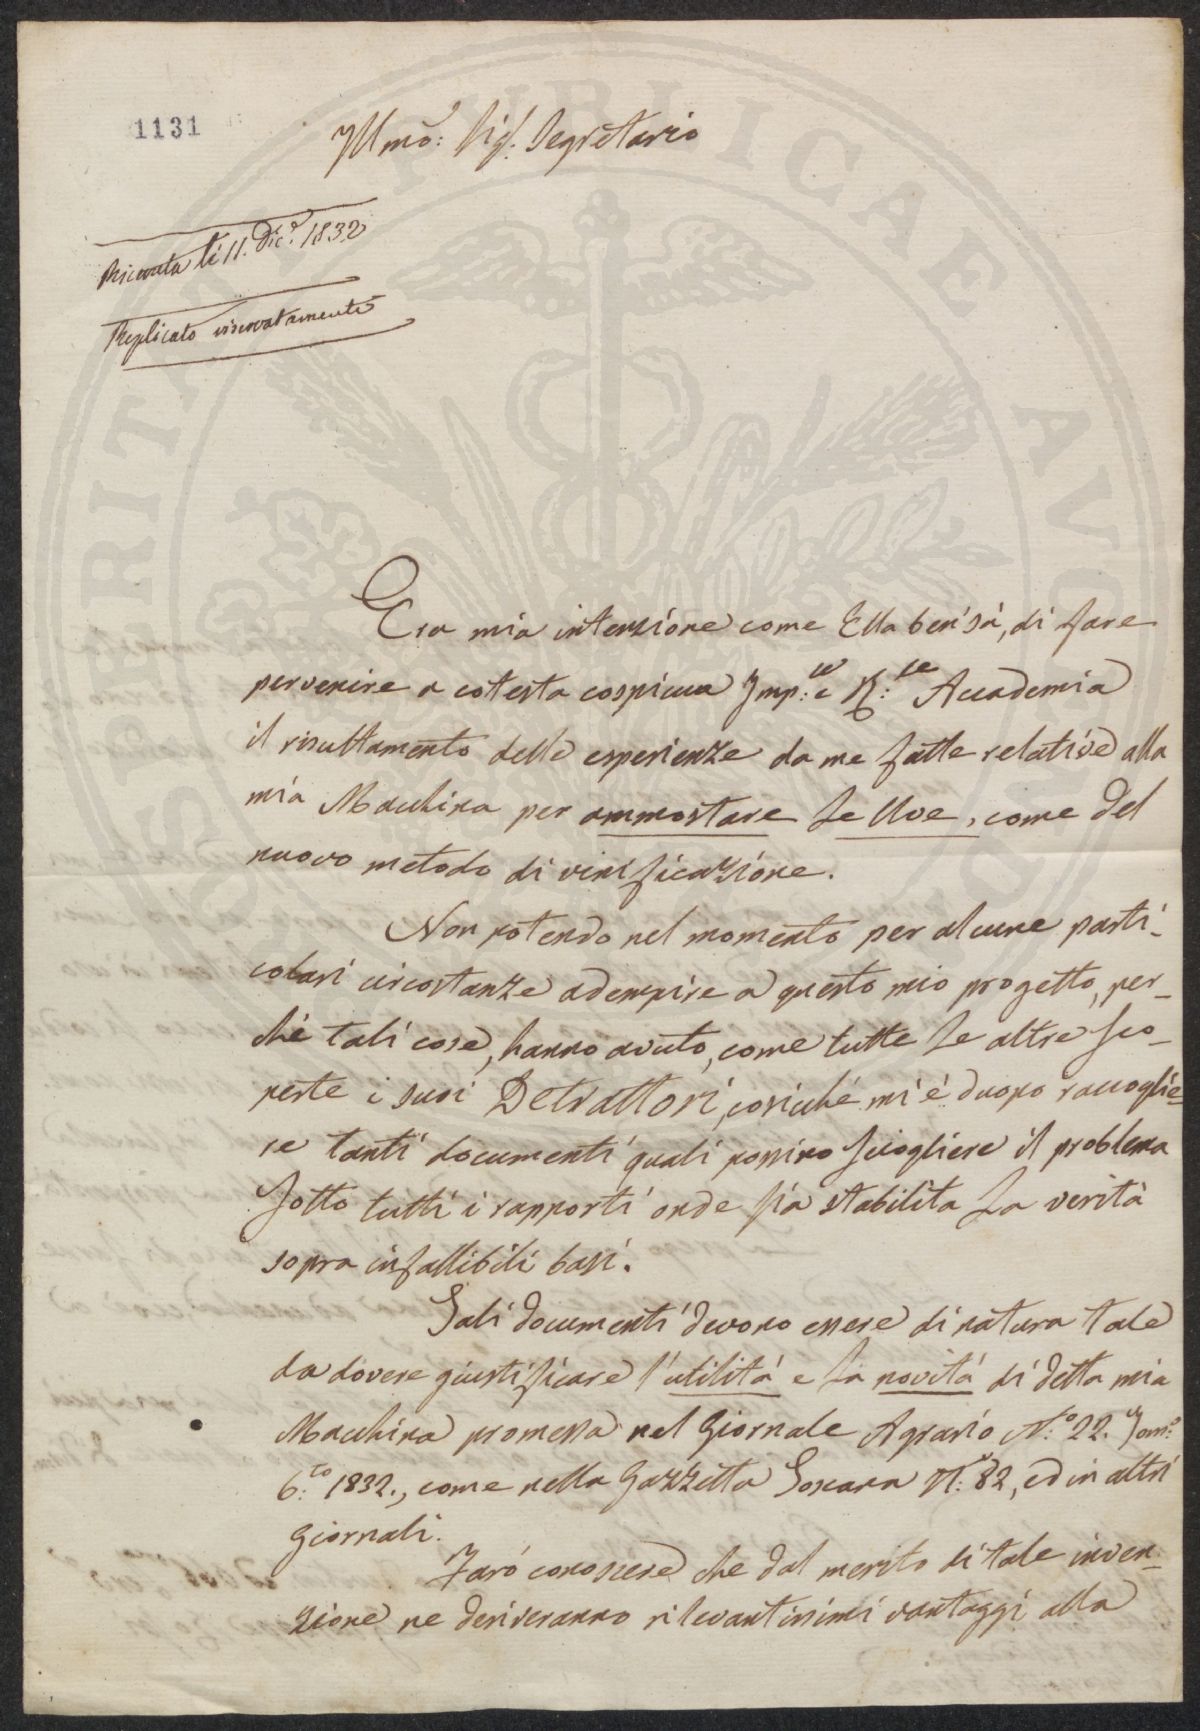 1131
Illmo: Sig. Segretario
Ricevuta li 11. Dic.e 1832
Replicato riservatamente
Era mia intenzione come Ella ben sà, di fare
pervenire a cotesta cospicua Imp:le e R:le Accademia
il risultamento delle esperienze da me fatte relative alla
mia Macchina per ammostare le Uve, come del
nuovo metodo di vinificazione.
Non potendo nel momento per alcune parti-
colari circostanze adempire a questo mio progetto, per-
chè tali cose, hanno avuto, come tutte le altre sco-
perte i suoi Detrattori, cosicché mi é duopo raccoglie-
re tanti documenti quali possino sciogliere il problema
sotto tutti i rapporti onde sia stabilita la verità
sopra infallibili basi.
Tali documenti devono essere di natura tale
da dovere giustificare l'utilità e la novità di detta mia
Macchina promessa nel Giornale Agrario N.o 22. Tom:o
6:to 1832., come nella Gazzetta Toscana N.o 82, ed in altri
Giornali.
Farò conoscere che dal merito di tale inven-
zione ne deriveranno rilevantissimi vantaggi alla